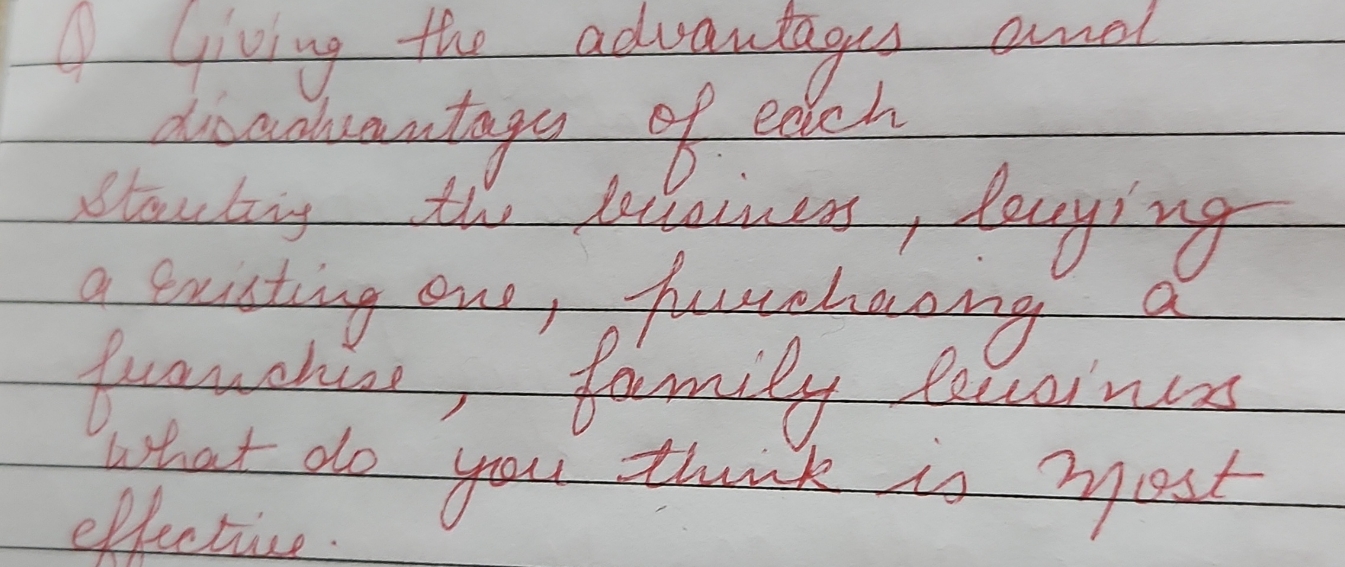 Q Giving the advantages and
disadvantages of each
Starting the business, buying
a existing one, purchasing a
franchise, family business
What do you think is most
effective.